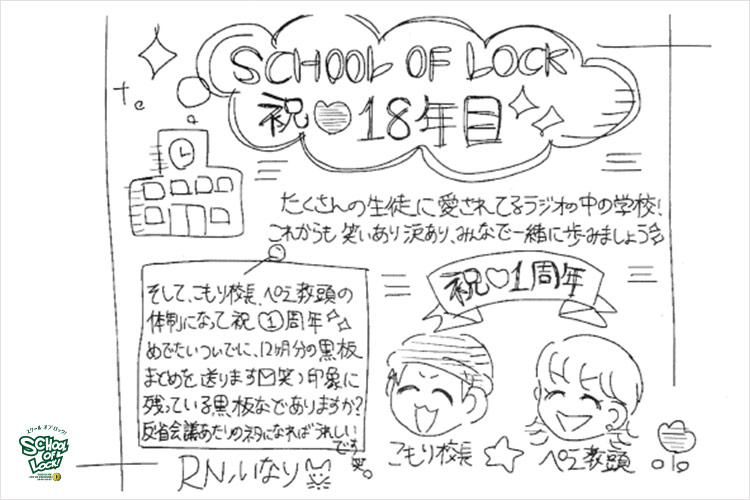 SCHOOL OF LOCK
祝♡18年目
たくさんの生徒に愛されてるラジオの中の学校!
これからも笑いあり涙あり、みんなで一緒に歩みましょう
祝♡1周年
そして、こもり校長、ぺえ教頭の
体制になって祝①周年
めでたいついでに、12ヶ月分の黒板
まとめを送ります✉笑)印象に
残っている黒板などありますか?
反省会議あたりのネタになればうれしい
です笑。
こもり校長
ぺえ教頭
RN,いなり
スクール オブ ロック!
SCHOOL
OF
LOCK!